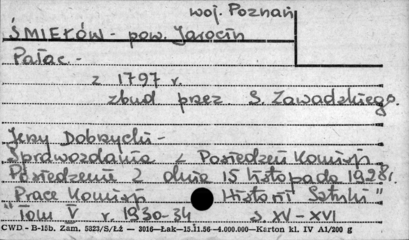 woj. Poznań
ŚMIEŁÓW - pow. Jarocin
Pałac -
z 1797 r.
zbud przez S. Zawadzkiego.
Jerzy Dobrzycki -
Sprawozdania z Posiedzeń Komisji
Posiedzenie z dnia 15 listopada 1928 r.
"Prace Komisji Historii Sztuki"
Tom V r. 1930-34 s. XV-XVI
CWD - B-15b. Zam. 5823/S/Łż — 2016—Łak—15.11.56 -4.000.000—Karton kl. IV A1/200 g